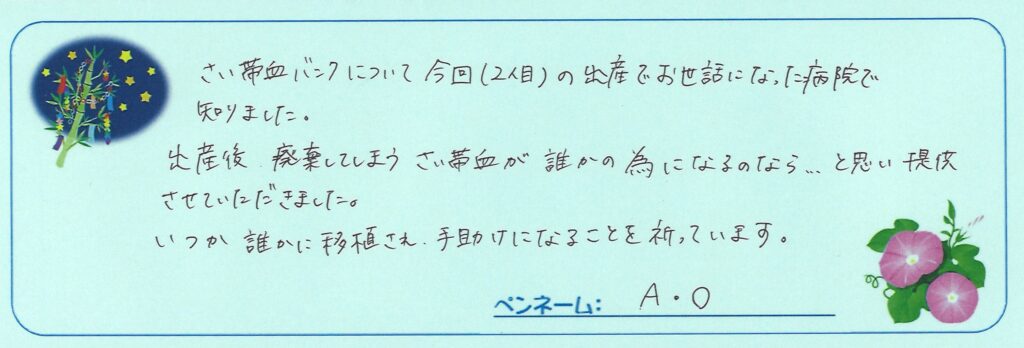 さい帯血バンクについて今回(2人目)の出産でお世話になった病院で
知りました。
出産後、廃棄してしまうさい帯血が誰かの為になるのなら…と思い提供
させていただきました。
いつか誰かに移植され、手助けになることを祈っています。
ペンネーム: A・O